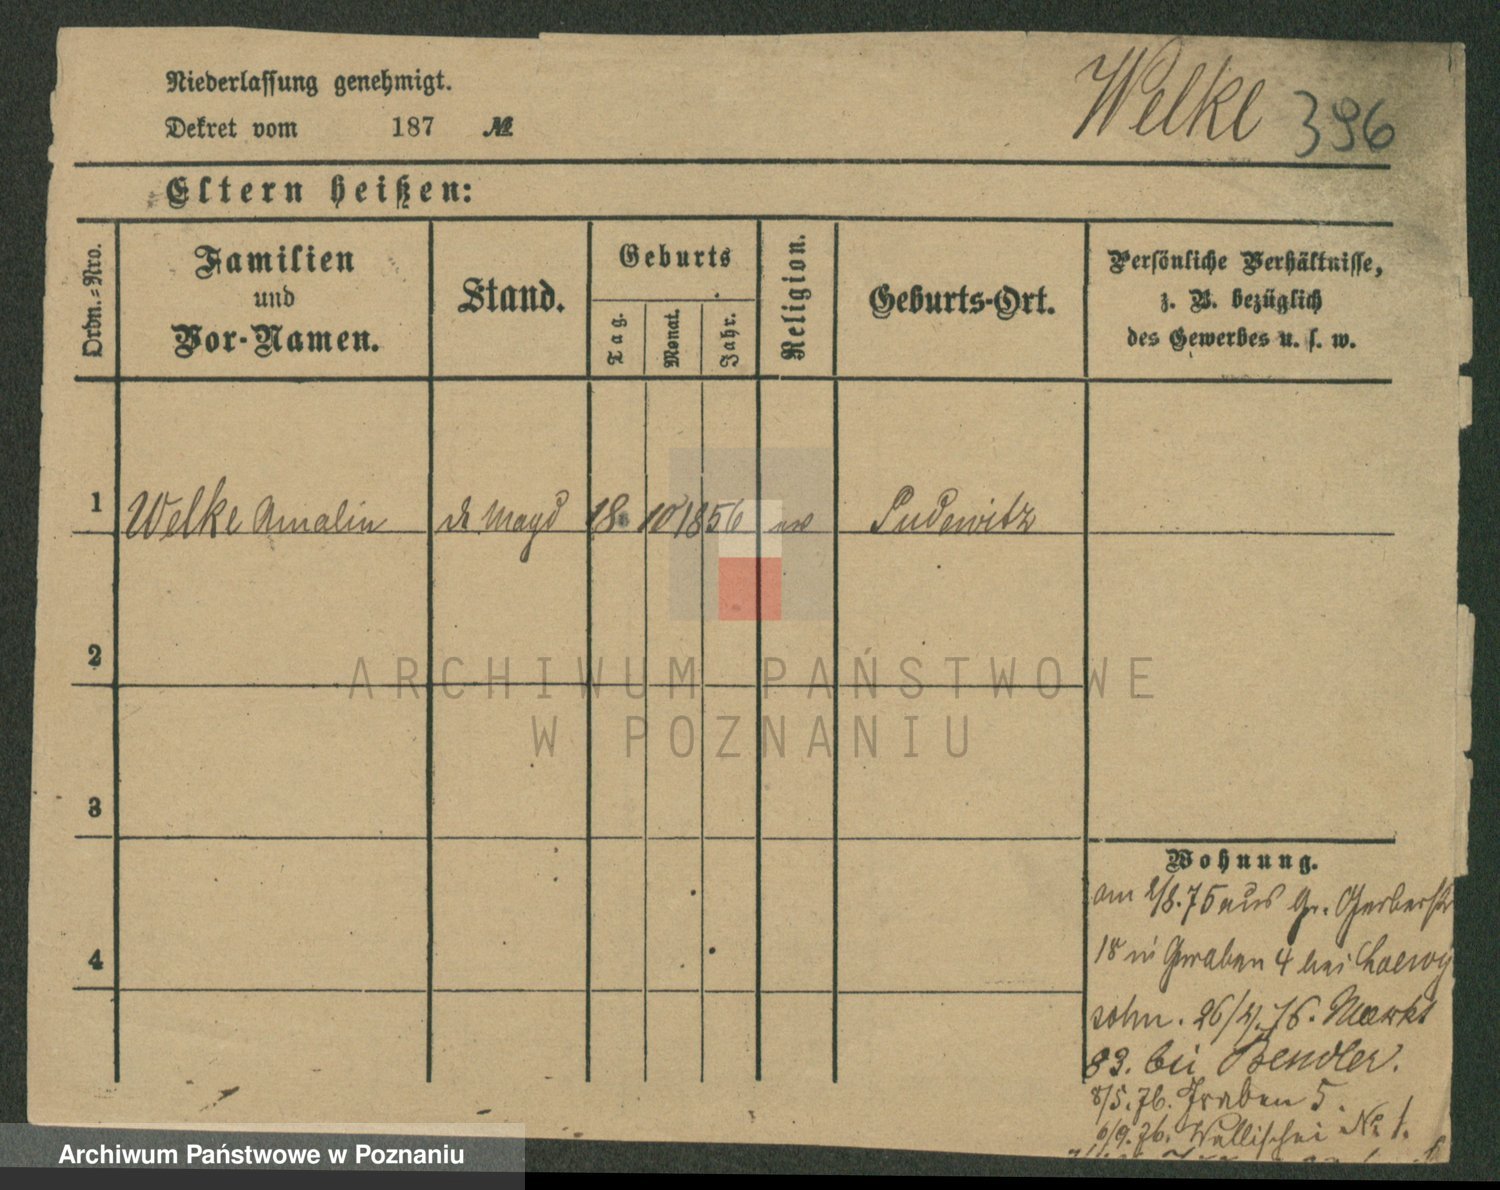 Niederlassung genehmigt.
Welke 396
Dekret vom 187 №
Eltern heißen:
Ordn.-Nro.
Familien
und
Vor-Namen.
Stand.
Geburts
Tag.
Monat.
Jahr.
Religion.
Geburts-Ort.
Persönliche Verhältnisse,
z. B. bezüglich
des Gewerbes u. s. w.
1 Welke Amalie d Magd 18 10 1856 ev Pudewitz
2
3
4
Wohnung.
am 2/8.75 aus Gr. Gerberstr
18 in Graben 4 bei Loewy
sohn. 26/4.76. Markt
83. bei Bendler.
8/5.76. Graben 5.
6/9.76. Wallischei No 1.
ARCHIWUM PAŃSTWOWE
W POZNANIU
Archiwum Państwowe w Poznaniu